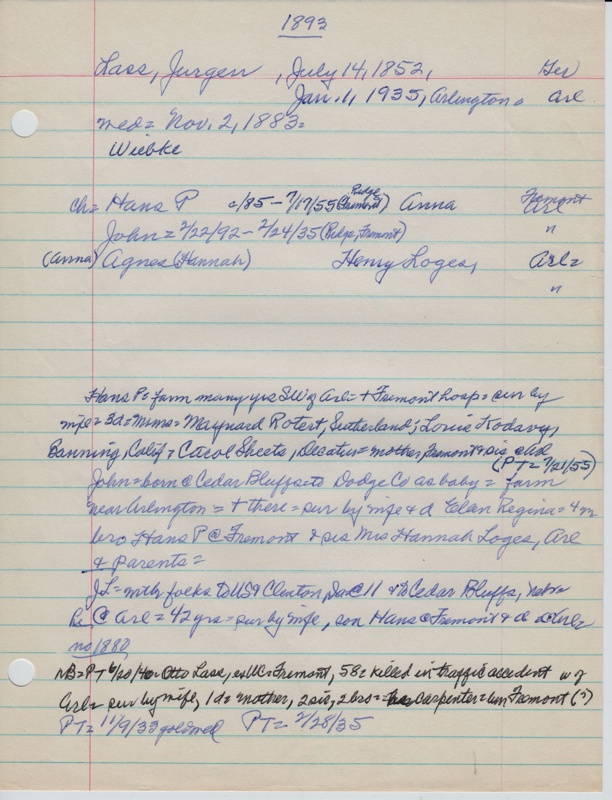 1893
Lass, Jurgen , July 14, 1852, Ger
Jan. 1, 1935, Arlington. Arl
med= Nov. 2, 1883=
Wiebke
ch= Hans P c/85 - 7/17/55 (Ridge, Fremont) Anna Fremont Arl
John = 2/22/92 - 2/24/35 (Ridge, Fremont) "
(Anna) Agnes (Hannah) Henry Loges, Arl=
"
Hans P= farm many yrs SW of Arl= + Fremont hosp= sur by
wife= 3d= Mmes= Maynard Rotert, Sutherland; Louis Kodavy,
Banning, Calif; Carol Sheets, Decatur= mother, Fremont & sis @ Arl
(PT= 7/21/55)
John= born @ Cedar Bluffs to Dodge Co as baby = farm
near Arlington = + there = sur by wife & d Elan Regina= 4 m
bro Hans P @ Fremont & sis Mrs Hannah Loges, Arl
& parents=
JL= with folks to US & Clinton, @ 11 & to Cedar Bluffs, Nebr=
he @ Arl= 42 yrs= sur by wife, son Hans @ Fremont & d @ Arl=
no 1880,
NB= PT 6/20/40= Otto Lass, Fremont, 58= killed in traffic accident w of
Arl= sur by wife, 1 d= mother, 2 sis, 2 bros= carpenter= Fremont (?)
PT= 11/9/33 gold wed PT= 2/28/35